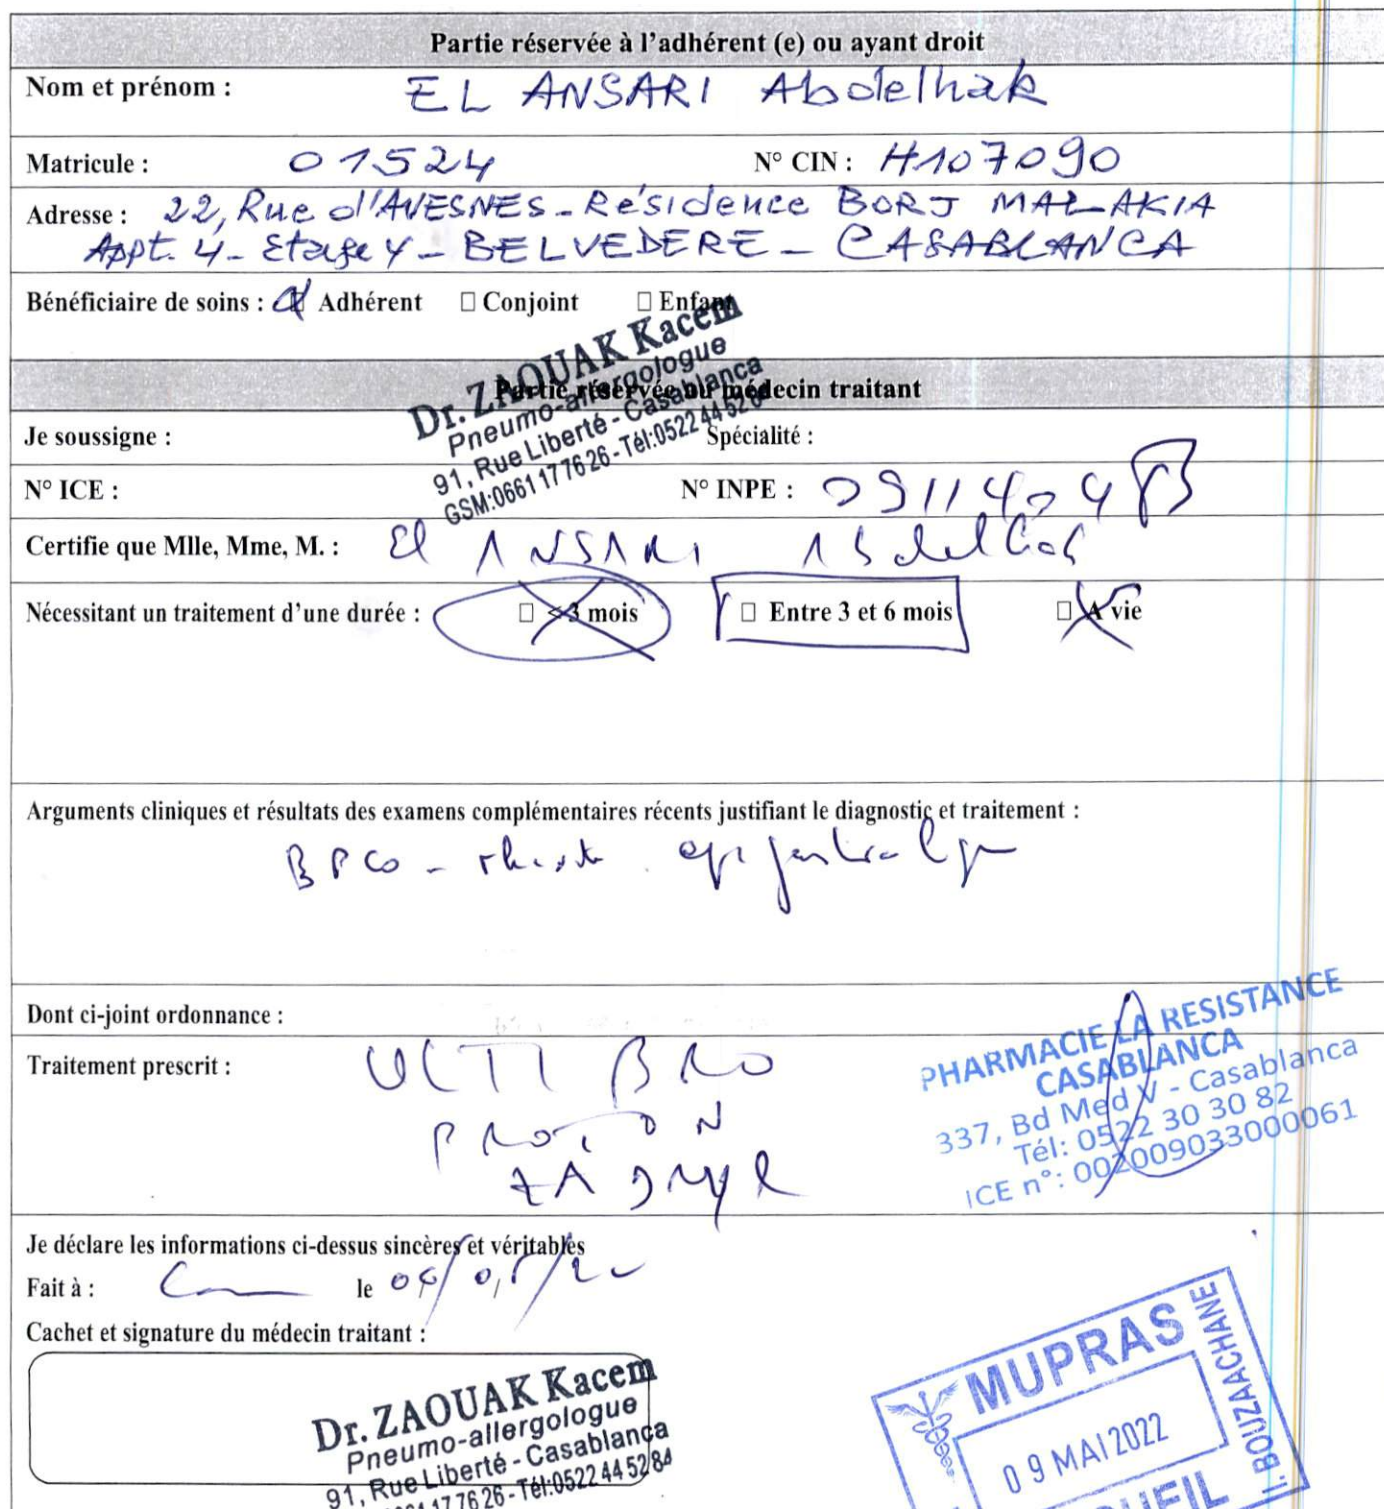 Partie réservée à l'adhérent (e) ou ayant droit
Nom et prénom : EL ANSARI Abdelhak
Matricule : 01524 N° CIN : H107090
Adresse : 22, Rue d'AVESNES - Résidence BORJ MALAKIA
Appt. 4 - Etage 4 - BELVEDERE - CASABLANCA
Bénéficiaire de soins : Adhérent □ Conjoint □ Enfant
Dr. ZAOUAK Kacem
Pneumo-allergologue
91, Rue Liberté - Casablanca
GSM:0661 17 76 26 - Tél:0522 44 52
Partie réservée au médecin traitant
Je soussigne : Spécialité :
N° ICE : N° INPE :
Certifie que Mlle, Mme, M. : El ANSARI Abdelhak
Nécessitant un traitement d'une durée : □ <3 mois □ Entre 3 et 6 mois □ A vie
Arguments cliniques et résultats des examens complémentaires récents justifiant le diagnostic et traitement :
BPCO - rhinite epigastralgie
Dont ci-joint ordonnance :
Traitement prescrit : ULTIBRO
PROTON
ZADRYL
PHARMACIE LA RESISTANCE
CASABLANCA
337, Bd Med V - Casablanca
Tél: 0522 30 30 82
ICE n°: 002009033000061
Je déclare les informations ci-dessus sincères et véritables
Fait à : le
Cachet et signature du médecin traitant :
Dr. ZAOUAK Kacem
Pneumo-allergologue
91, Rue Liberté - Casablanca
17 76 26 - Tél:0522 44 52 84
MUPRAS
09 MAI 2022
BOUZAACHANE